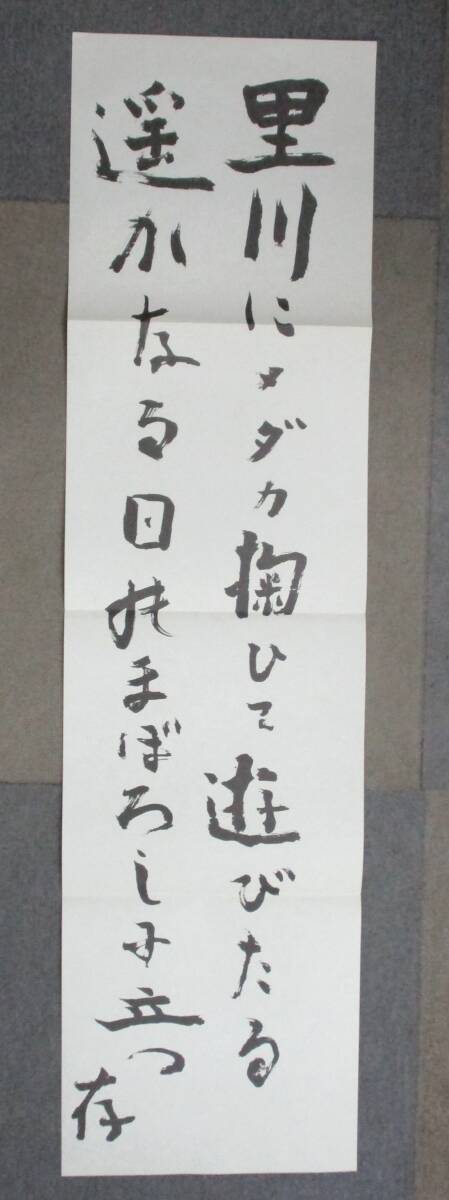 里川にメダカ掬ひて遊びたる
遥かなる日のまぼろしに立つ
存